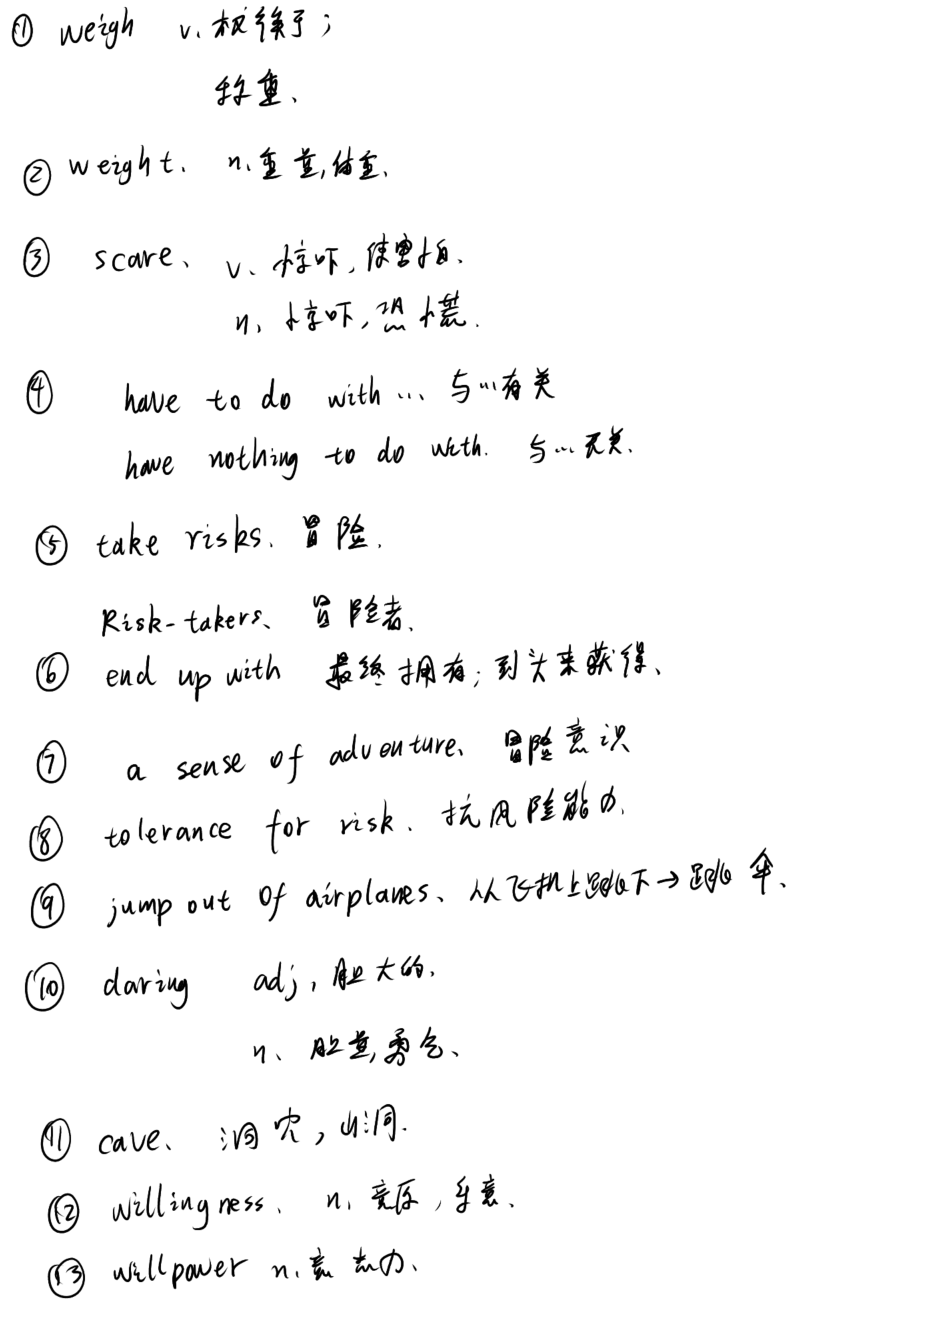 ① weigh v. 权衡;
称重、
② weight. n.重量,体重.
③ scare、 v、惊吓,使害怕.
n, 惊吓,恐慌.
④ have to do with... 与...有关
have nothing to do with. 与...无关.
⑤ take risks. 冒险.
Risk-takers、 冒险者.
⑥ end up with 最终拥有;到头来获得、
⑦ a sense of adventure、 冒险意识
⑧ tolerance for risk. 抗风险能力.
⑨ jump out of airplanes、从飞机上跳下→跳伞、
⑩ daring adj, 胆大的.
n、 胆量,勇气、
⑪ cave、 洞穴,山洞.
⑫ willingness. n, 意愿,乐意、
⑬ willpower n.意志力、